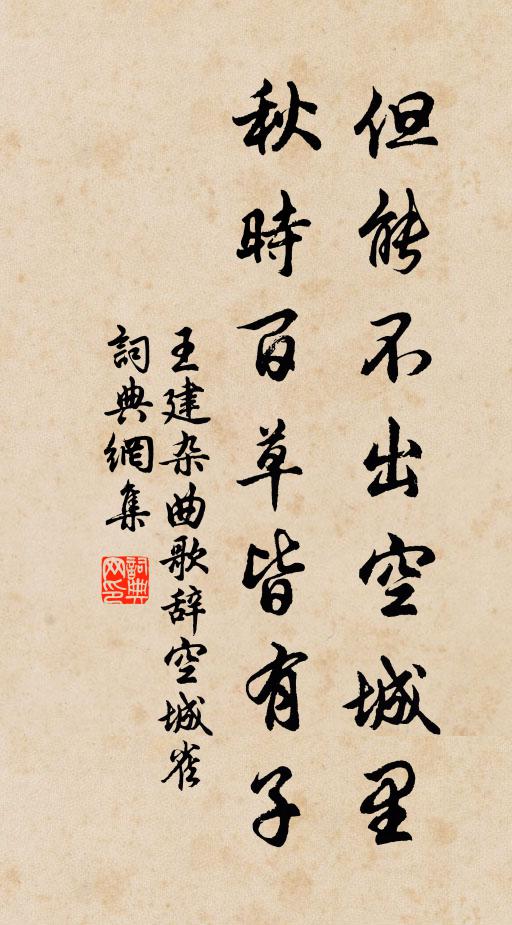 但能不出空城里
秋時百草皆有子
王建杂曲歌辞空城雀
詞典網集
詞典网印